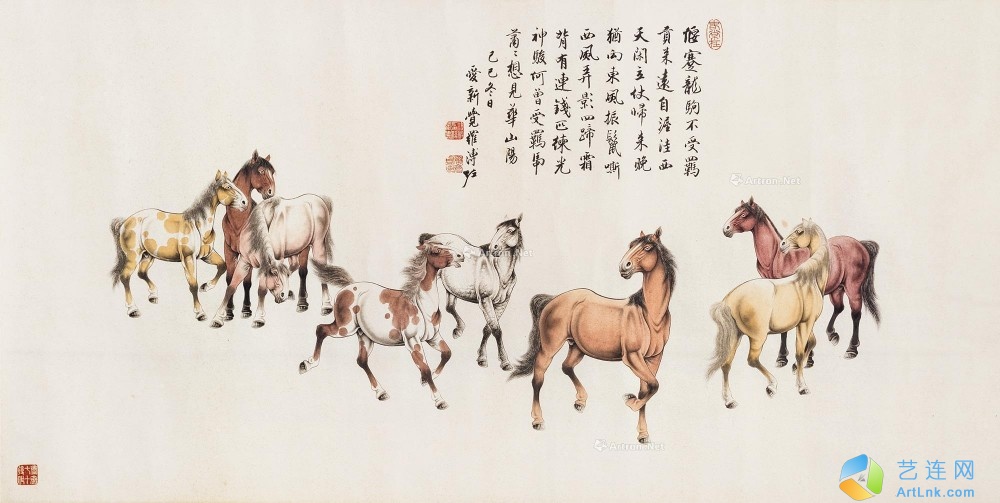 偃蹇龍駒不受羈
貢来遠自渥洼西
天閑立仗歸来晚
猶向東風振鬣嘶
西風弄影四蹄霜
背有連錢匹練光
神駿何曾受羈
萧々想見華山陽
己巳冬日
愛新覺羅溥佐
Artron.Net
Artron.Net
Artron.Net
艺连网
ArtLnk.com